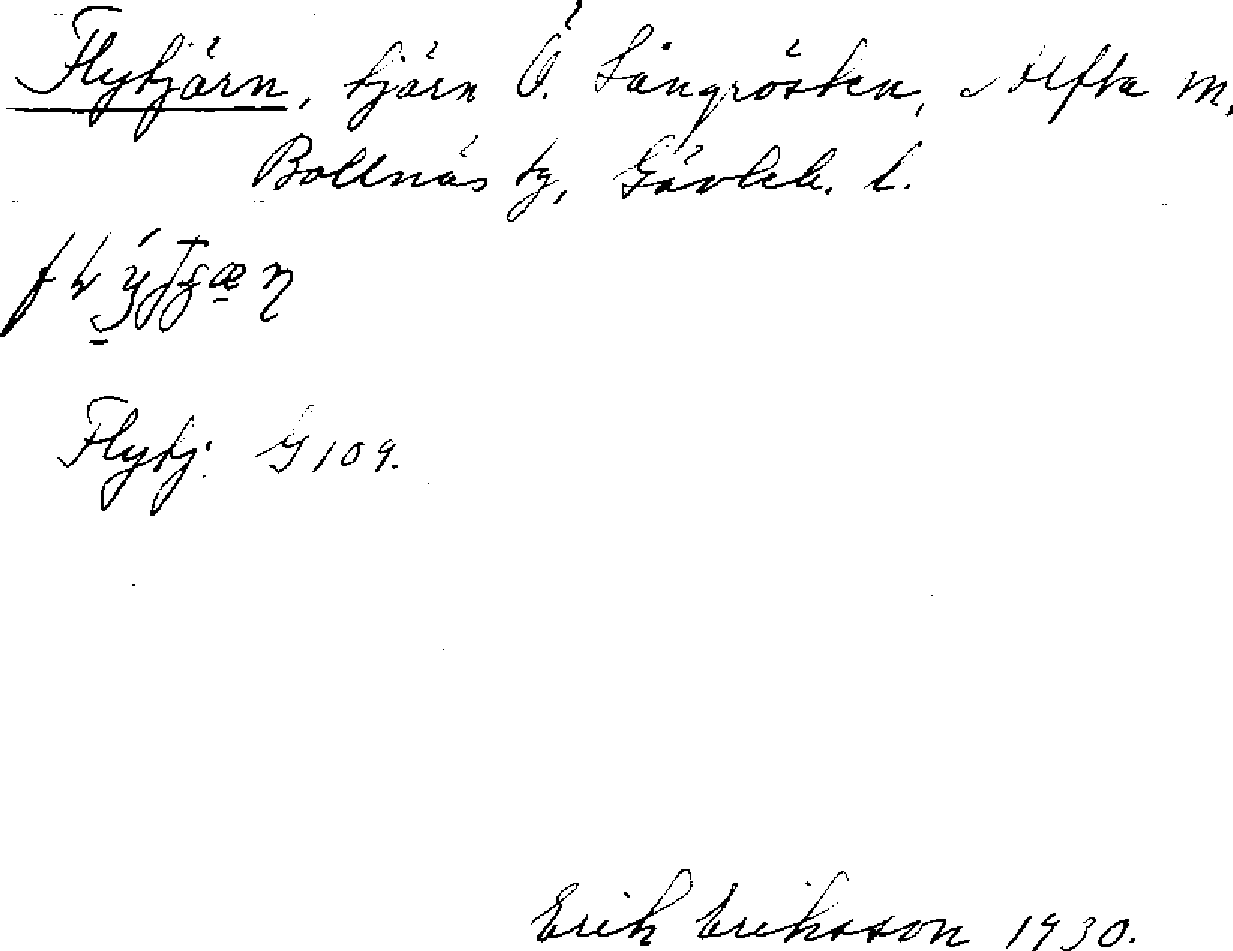 Flytjärn, tjärn Ö. Långrösten, Alfta sn,
Bollnäs tg, Gävleb. l.
Flytj. G 109.
Erik Eriksson 1930.